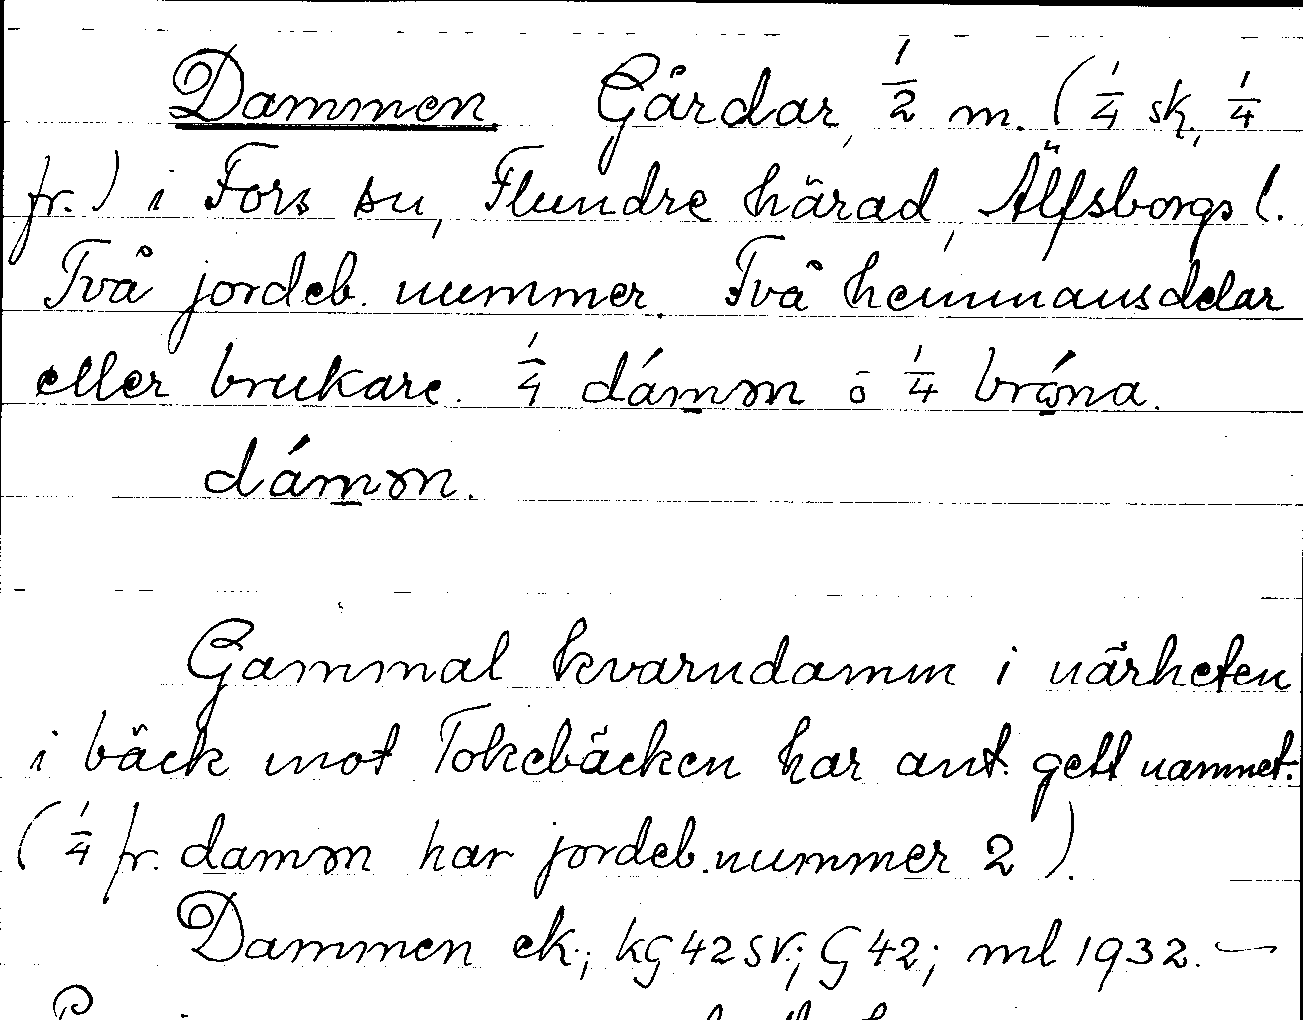 Dammen Gårdar, 1/2 m. (1/4 sk., 1/4
fr.) i Fors sn, Flundre härad, Älfsborgs l.
Två jordeb. nummer. Två hemmansdelar
eller brukare. 1/4 dám̲ən ō 1/4
dám̲ən.
Gammal kvarndamm i närheten
i bäck mot Tokebäcken har ant. gett namnet.
(1/4 fr. damən har jordeb.nummer 2).
Dammen ek.; kG 42 SV.; G 42; ml 1932. —